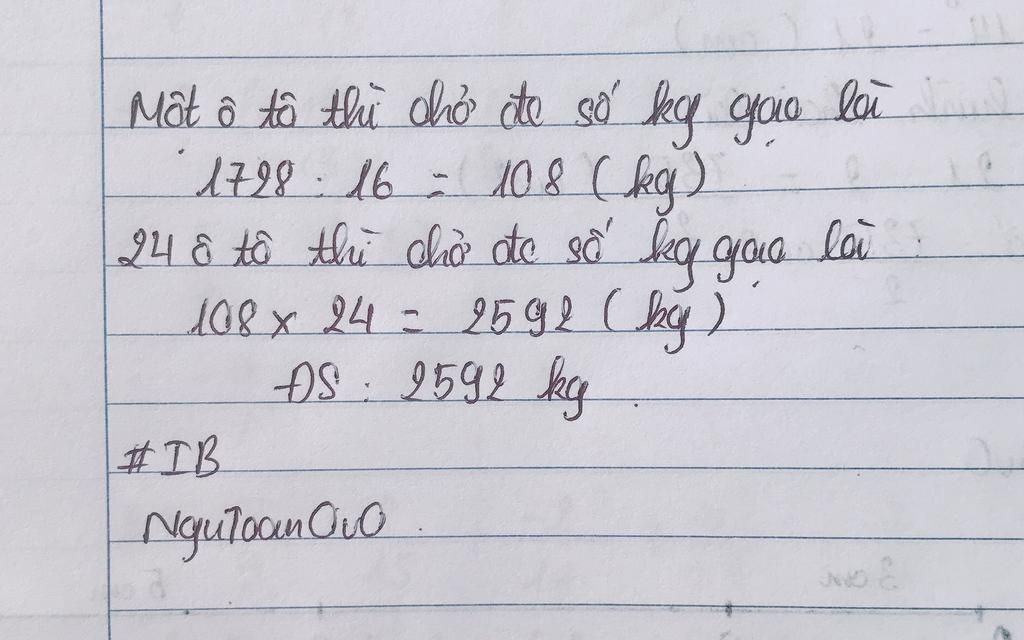 Một ô tô thì chở đc số kg gạo là
1728 : 16 = 108 (kg)
24 ô tô thì chở đc số kg gạo là :
108 x 24 = 2592 (kg)
ĐS : 2592 kg
#IB
NguToanOvO